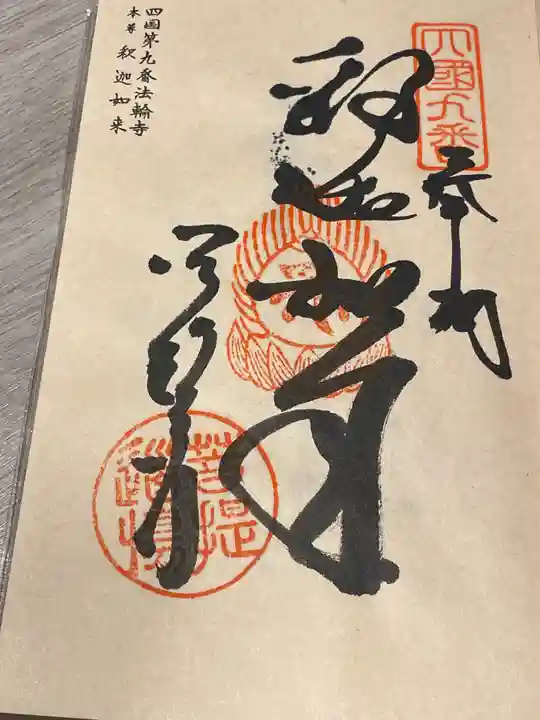 四國九番
奉納
釈迦如来
四国第九番法輪寺
本尊 釈迦如来
菩提
道場